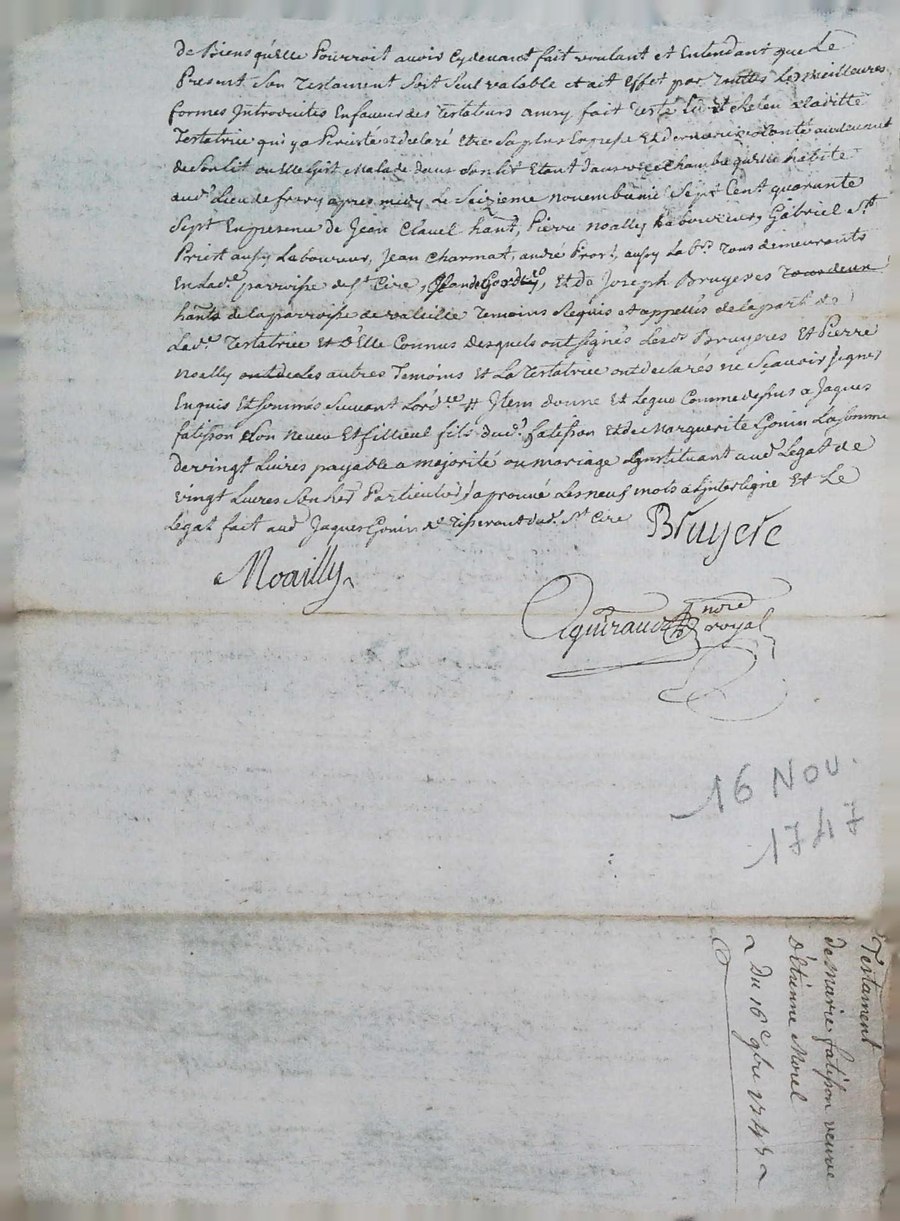 de Biens qu'elle Pourroit avoir Cydevant fait voulant et Entendant que Le
Present Son Testament Soit Seul valable et ait Effet par Toutes Les meilleures
formes Introduites Enfaveur des Testateurs ainsy fait Testé Lu et Releu aladitte
Testatrice qui ya Persisté et declaré Etre Sa plus Expresse Et derniere volonté audevant
de Son lit ou Elle Gist Malade dans Son lit Etant dans une Chambre qu'elle habite
aud. Lieu de apres midy Le Seizieme novembre mil Sept Cent quarante
Sept En presence de Jean Clavel hant, Pierre Noally Laboureur, Gabriel St
Priest aussy Laboureur, Jean Charmat, andré aussy Lab.rs Tous demeurants
En lad.e parroisse de St Cire, Et de Joseph Bruyeres
hants de la parroisse de valeille Temoins Requis et appellés de la part de
Lad.e Testatrice et d'Elle Connus Desquels ont signés Lesd. Bruyeres Et Pierre
Noally Les autres Temoins Et La Testatrice ont declarés ne Scavoir signer
Enquis Et Sommés Suivant Lord.ce # Item donne Et Legue Comme dessus a Jaques
fatisson Son neveu Et fillieul fils dud. fatisson Et de Marguerite Gonin La somme
de vingt Livres payable a majorité ou mariage Linstituant aud. Legat de
vingt Livres Son her. Particulier aprouvé Les neuf mots a L'interligne Et Le
Legat fait aud. Jaques Gonin Tisserant dud. St Cire Bruyere
Noailly
Aguiraud nore
royal
16 NOV.
1747
Testament
de Marie fatisson veuve
d'Etienne Morel
Du 16e 9bre 1747